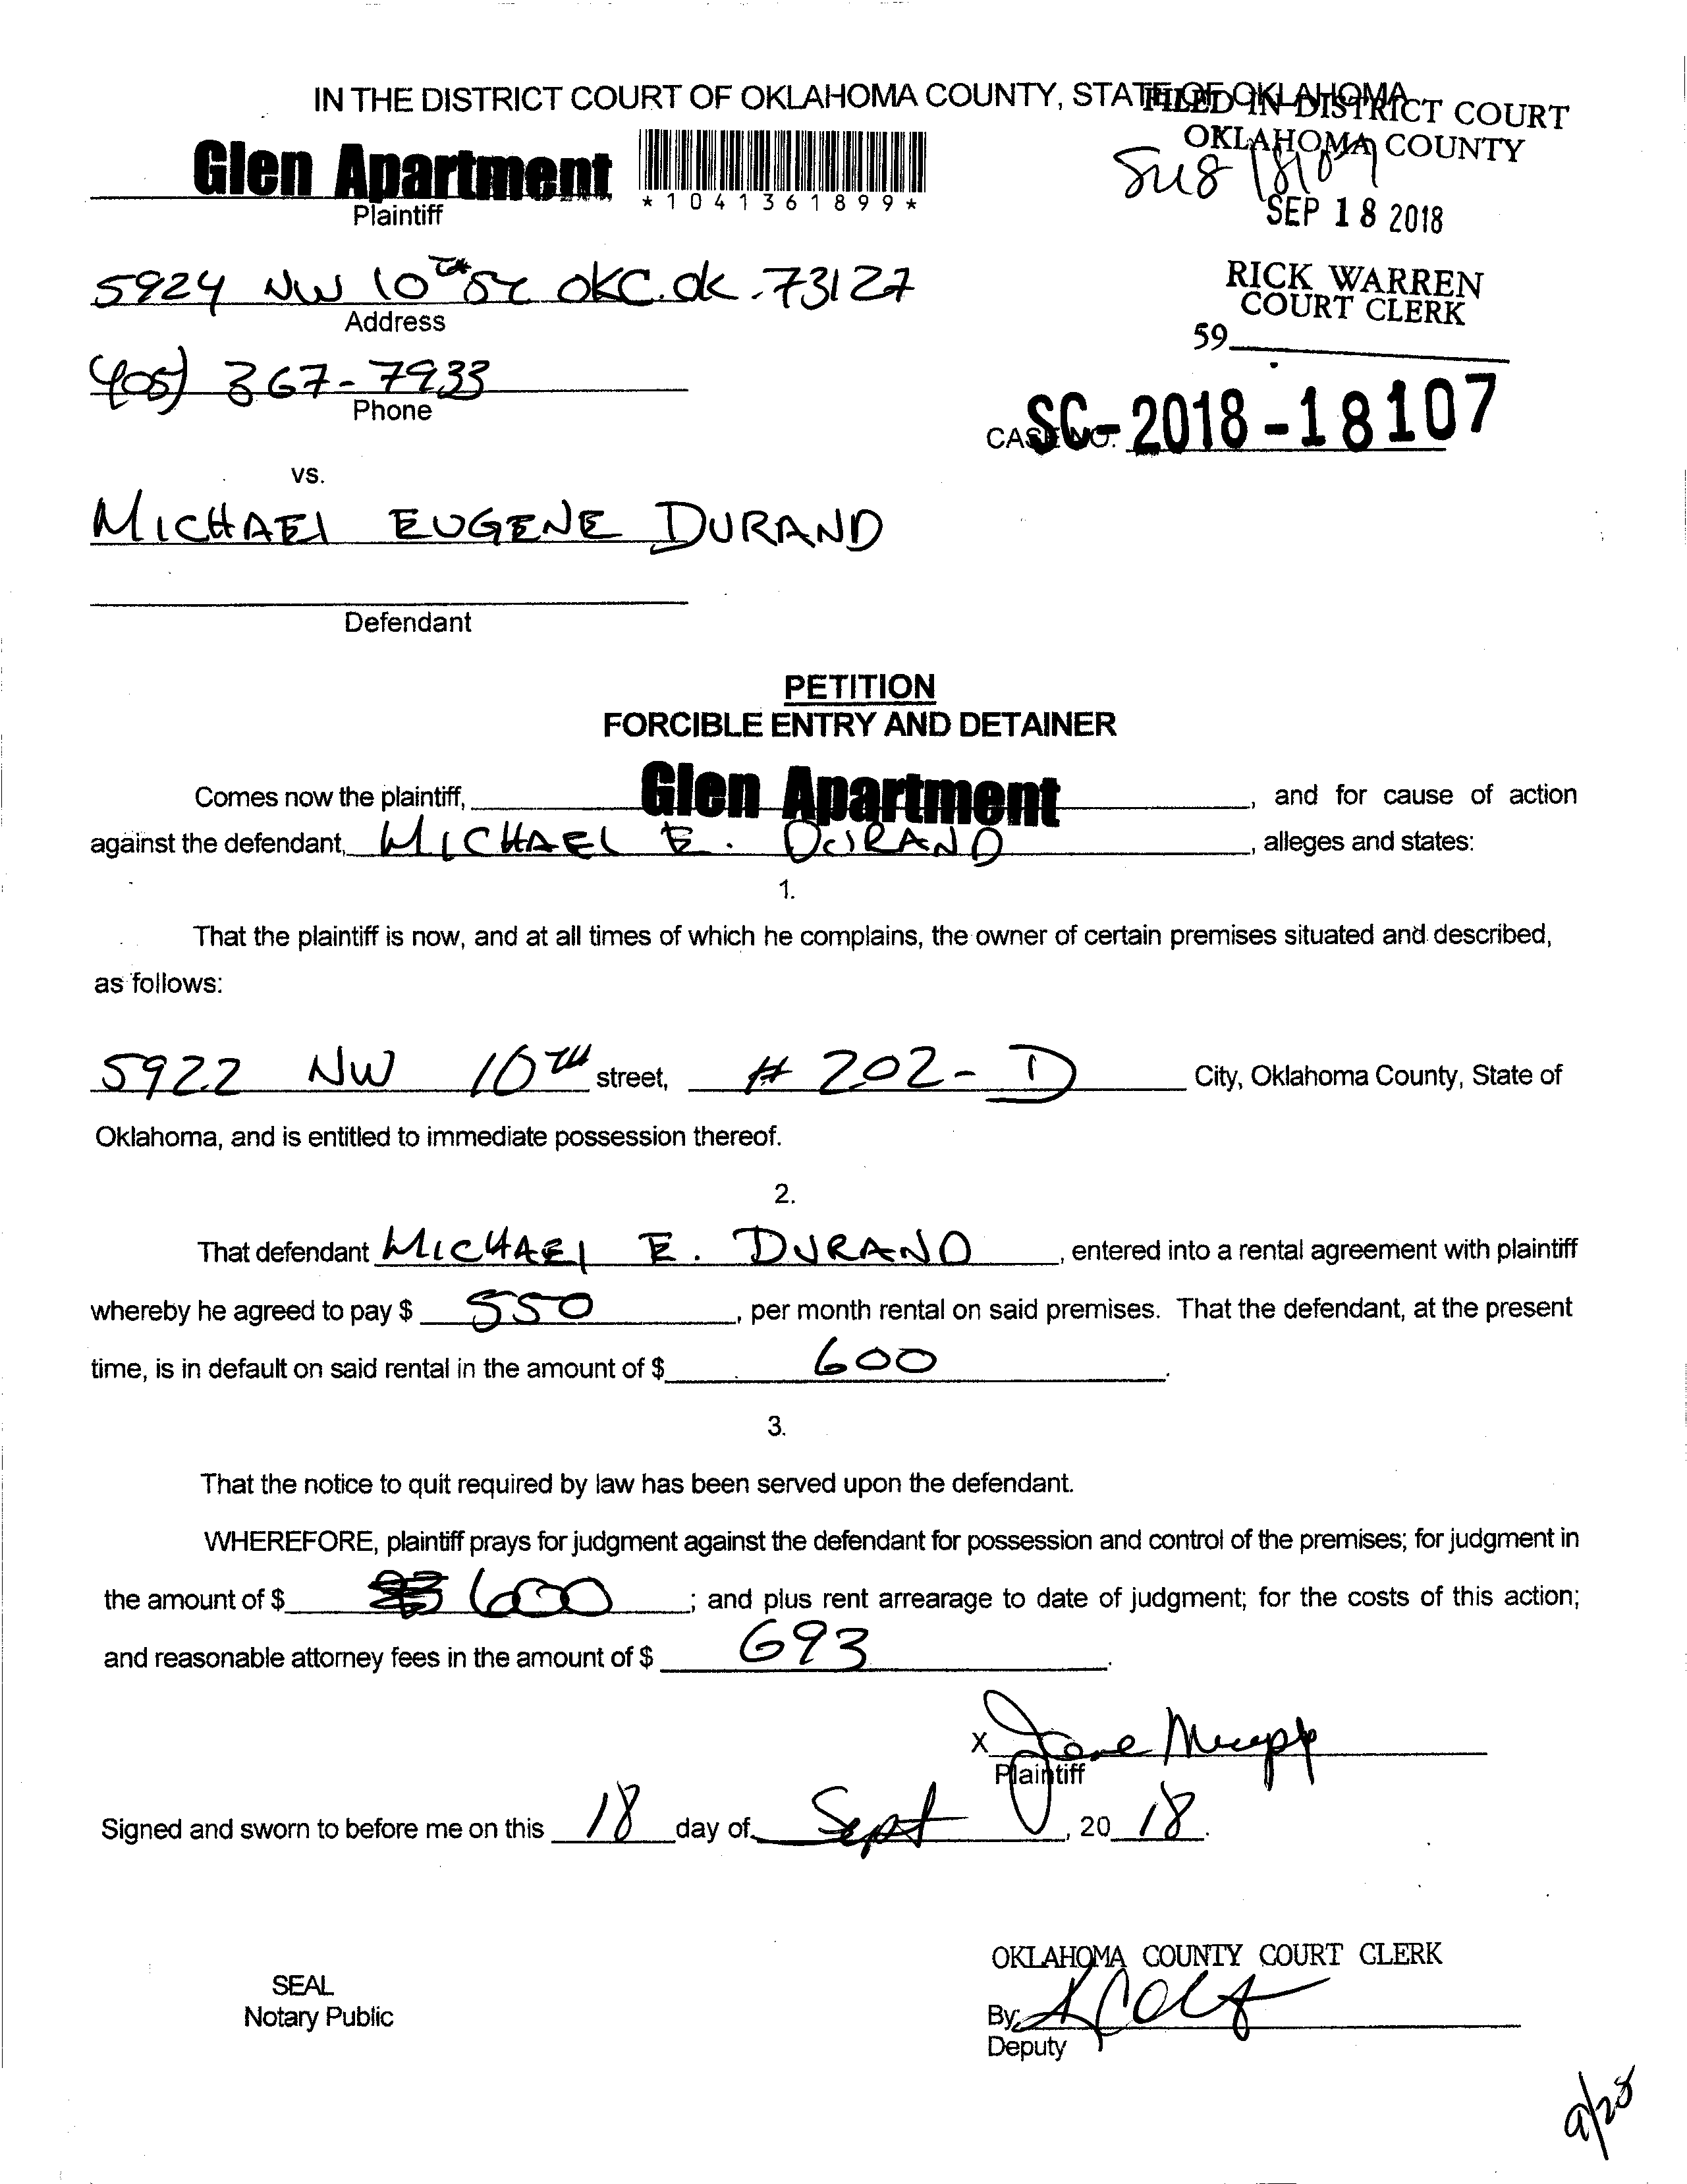 IN THE DISTRICT COURT OF OKLAHOMA COUNTY, STATE OF OKLAHOMA
FILED IN DISTRICT COURT
OKLAHOMA COUNTY
SEP 18 2018
RICK WARREN
COURT CLERK
59
Glen Apartment
*1041361899*
Plaintiff
5924 NW 10TH ST OKC. OK. 73127
Address
(405) 367-7933
Phone
CASE NO. SC-2018-18107
vs.
MICHAEL EUGENE DURAND
Defendant
PETITION
FORCIBLE ENTRY AND DETAINER
Comes now the plaintiff, Glen Apartment, and for cause of action
against the defendant, MICHAEL E. DURAND, alleges and states:
1.
That the plaintiff is now, and at all times of which he complains, the owner of certain premises situated and described,
as follows:
5922 NW 10TH street, # 202-D City, Oklahoma County, State of
Oklahoma, and is entitled to immediate possession thereof.
2.
That defendant MICHAEL E. DURAND, entered into a rental agreement with plaintiff
whereby he agreed to pay $ 550, per month rental on said premises. That the defendant, at the present
time, is in default on said rental in the amount of $ 600.
3.
That the notice to quit required by law has been served upon the defendant.
WHEREFORE, plaintiff prays for judgment against the defendant for possession and control of the premises; for judgment in
the amount of $ 600; and plus rent arrearage to date of judgment; for the costs of this action;
and reasonable attorney fees in the amount of $ 693.
X
Plaintiff
Signed and sworn to before me on this 18 day of Sept, 20 18.
OKLAHOMA COUNTY COURT CLERK
SEAL
Notary Public
By
Deputy
9/28